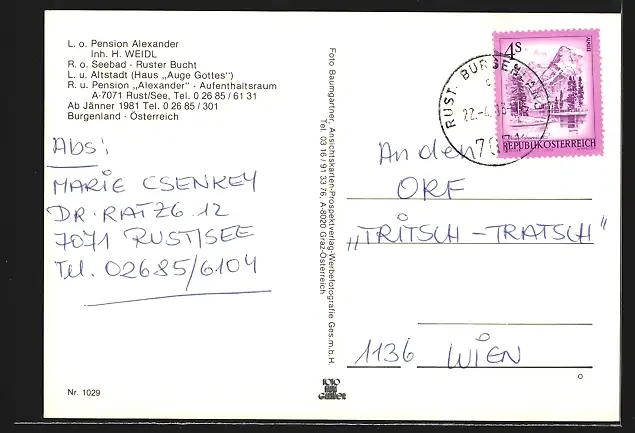 L. o. Pension Alexander
Inh. H. WEIDL
R. o. Seebad - Ruster Bucht
L. u. Altstadt (Haus „Auge Gottes")
R. u. Pension „Alexander" - Aufenthaltsraum
A-7071 Rust/See, Tel. 0 26 85 / 61 31
Ab Jänner 1981 Tel. 0 26 85 / 301
Burgenland - Österreich
Abs:
MARIE CSENKEY
DR. RATZG. 12
7071 RUST/SEE
Tel. 02685/6104
Nr. 1029
Foto Baumgartner, Ansichtskarten-Prospektverlag-Werbefotografie Ges.m.b.H.
Tel. 03 16 / 91 33 76, A-8020 Graz-Österreich
4 S
REPUBLIK ÖSTERREICH
RUST, BURGENLAND
22.-4.
An den
ORF
„TRITSCH-TRATSCH"
1136 WIEN